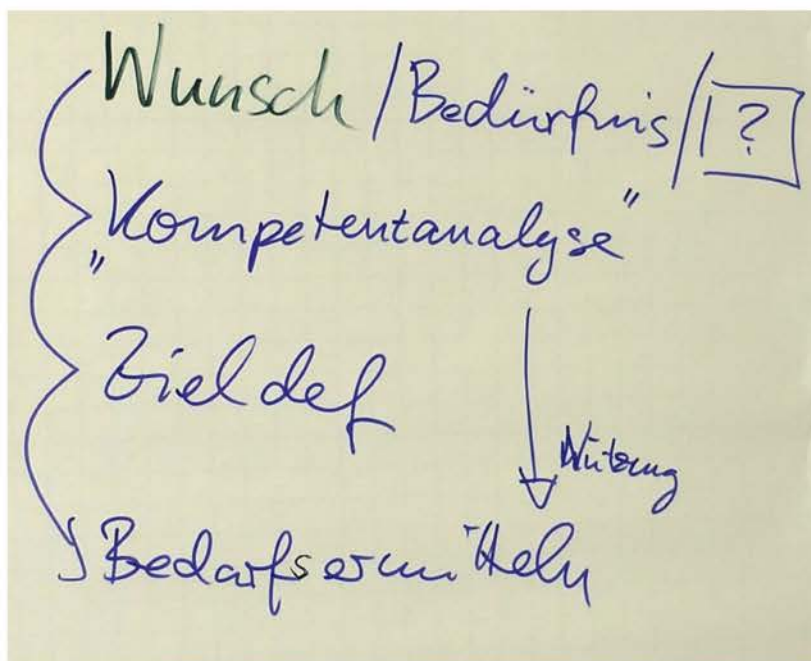 Wunsch / Bedürfnis / ?
„Kompetentanalyse"
Zieldef
Nützung
Bedarfsermitteln